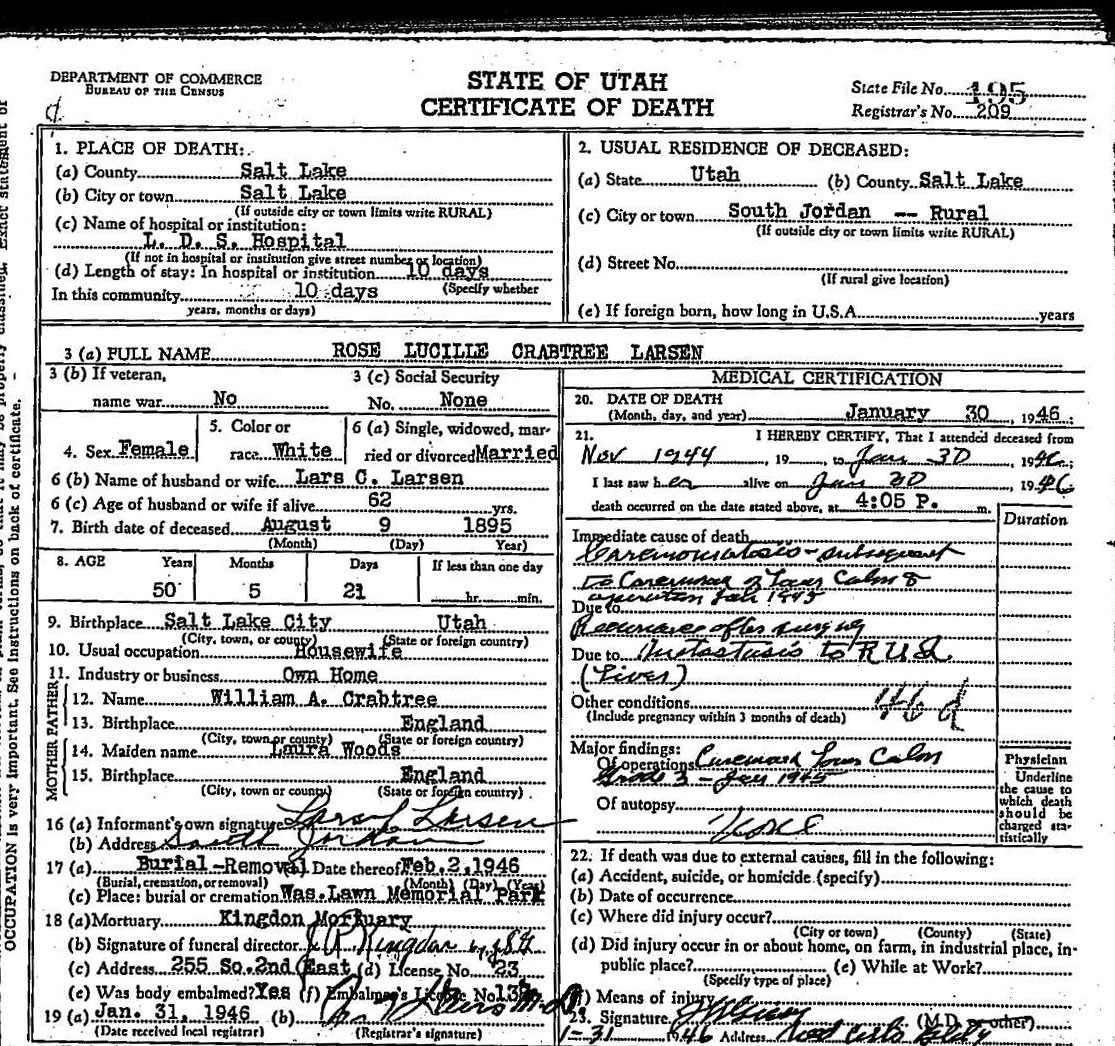 DEPARTMENT OF COMMERCE
BUREAU OF THE CENSUS
STATE OF UTAH
CERTIFICATE OF DEATH
State File No. 195
Registrar's No. 209
1. PLACE OF DEATH:
(a) County Salt Lake
(b) City or town Salt Lake
(If outside city or town limits write RURAL)
(c) Name of hospital or institution:
L. D. S. Hospital
(If not in hospital or institution give street number or location)
(d) Length of stay: In hospital or institution 10 days
(Specify whether
In this community 10 days
years, months or days)
2. USUAL RESIDENCE OF DECEASED:
(a) State Utah (b) County Salt Lake
(c) City or town South Jordan -- Rural
(If outside city or town limits write RURAL)
(d) Street No.
(If rural give location)
(e) If foreign born, how long in U.S.A. years
3 (a) FULL NAME ROSE LUCILLE CRABTREE LARSEN
3 (b) If veteran,
name war No
3 (c) Social Security
No. None
4. Sex Female
5. Color or
race White
6 (a) Single, widowed, mar-
ried or divorced Married
6 (b) Name of husband or wife Lars C. Larsen
6 (c) Age of husband or wife if alive 62 yrs.
7. Birth date of deceased August 9 1895
(Month) (Day) Year)
8. AGE Years Months Days If less than one day
50 5 21 hr. min.
9. Birthplace Salt Lake City Utah
(City, town, or county) (State or foreign country)
10. Usual occupation Housewife
11. Industry or business Own Home
FATHER
12. Name William A. Crabtree
13. Birthplace England
(City, town or county) (State or foreign country)
MOTHER
14. Maiden name Laura Woods
15. Birthplace England
(City, town or county) (State or foreign country)
16 (a) Informant's own signature Lars C Larsen
(b) Address South Jordan
17 (a) Burial-Removal Date thereof Feb. 2, 1946
(Burial, cremation, or removal) (Month) (Day) (Year)
(c) Place: burial or cremation Was. Lawn Memorial Park
18 (a) Mortuary Kingdon Mortuary
(b) Signature of funeral director Kingdon
(c) Address 255 So. 2nd East (d) License No. 23
(e) Was body embalmed? Yes (f) Embalmer's License No.
19 (a) Jan. 31, 1946 (b)
(Date received local registrar) (Registrar's signature)
MEDICAL CERTIFICATION
20. DATE OF DEATH
(Month, day, and year) January 30 , 1946 :
21. I HEREBY CERTIFY, That I attended deceased from
Nov 1944 , 19 , to Jan 30 , 1946 ;
I last saw her alive on Jan 30 , 1946
death occurred on the date stated above, at 4:05 P. m.
Duration
Immediate cause of death
Carcinomatosis - subsequent
to Carcinoma of Lower Colon &
operation Jan 1945
Due to
Recurrence after surgery
Due to Metastasis to R U Q.
(Liver)
Other conditions
(Include pregnancy within 3 months of death)
46 d
Major findings:
Of operations Carcinoma Lower Colon
Grade 3 - Jan 1945
Of autopsy
None
Physician
Underline
the cause to
which death
should be
charged sta-
tistically
22. If death was due to external causes, fill in the following:
(a) Accident, suicide, or homicide (specify)
(b) Date of occurrence
(c) Where did injury occur?
(City or town) (County) (State)
(d) Did injury occur in or about home, on farm, in industrial place, in-
public place? (e) While at Work?
(Specify type of place)
(f) Means of injury
23. Signature (M.D. or other)
1-31 1946 Address Bldg
OCCUPATION is very important. See instructions on back of certificate.